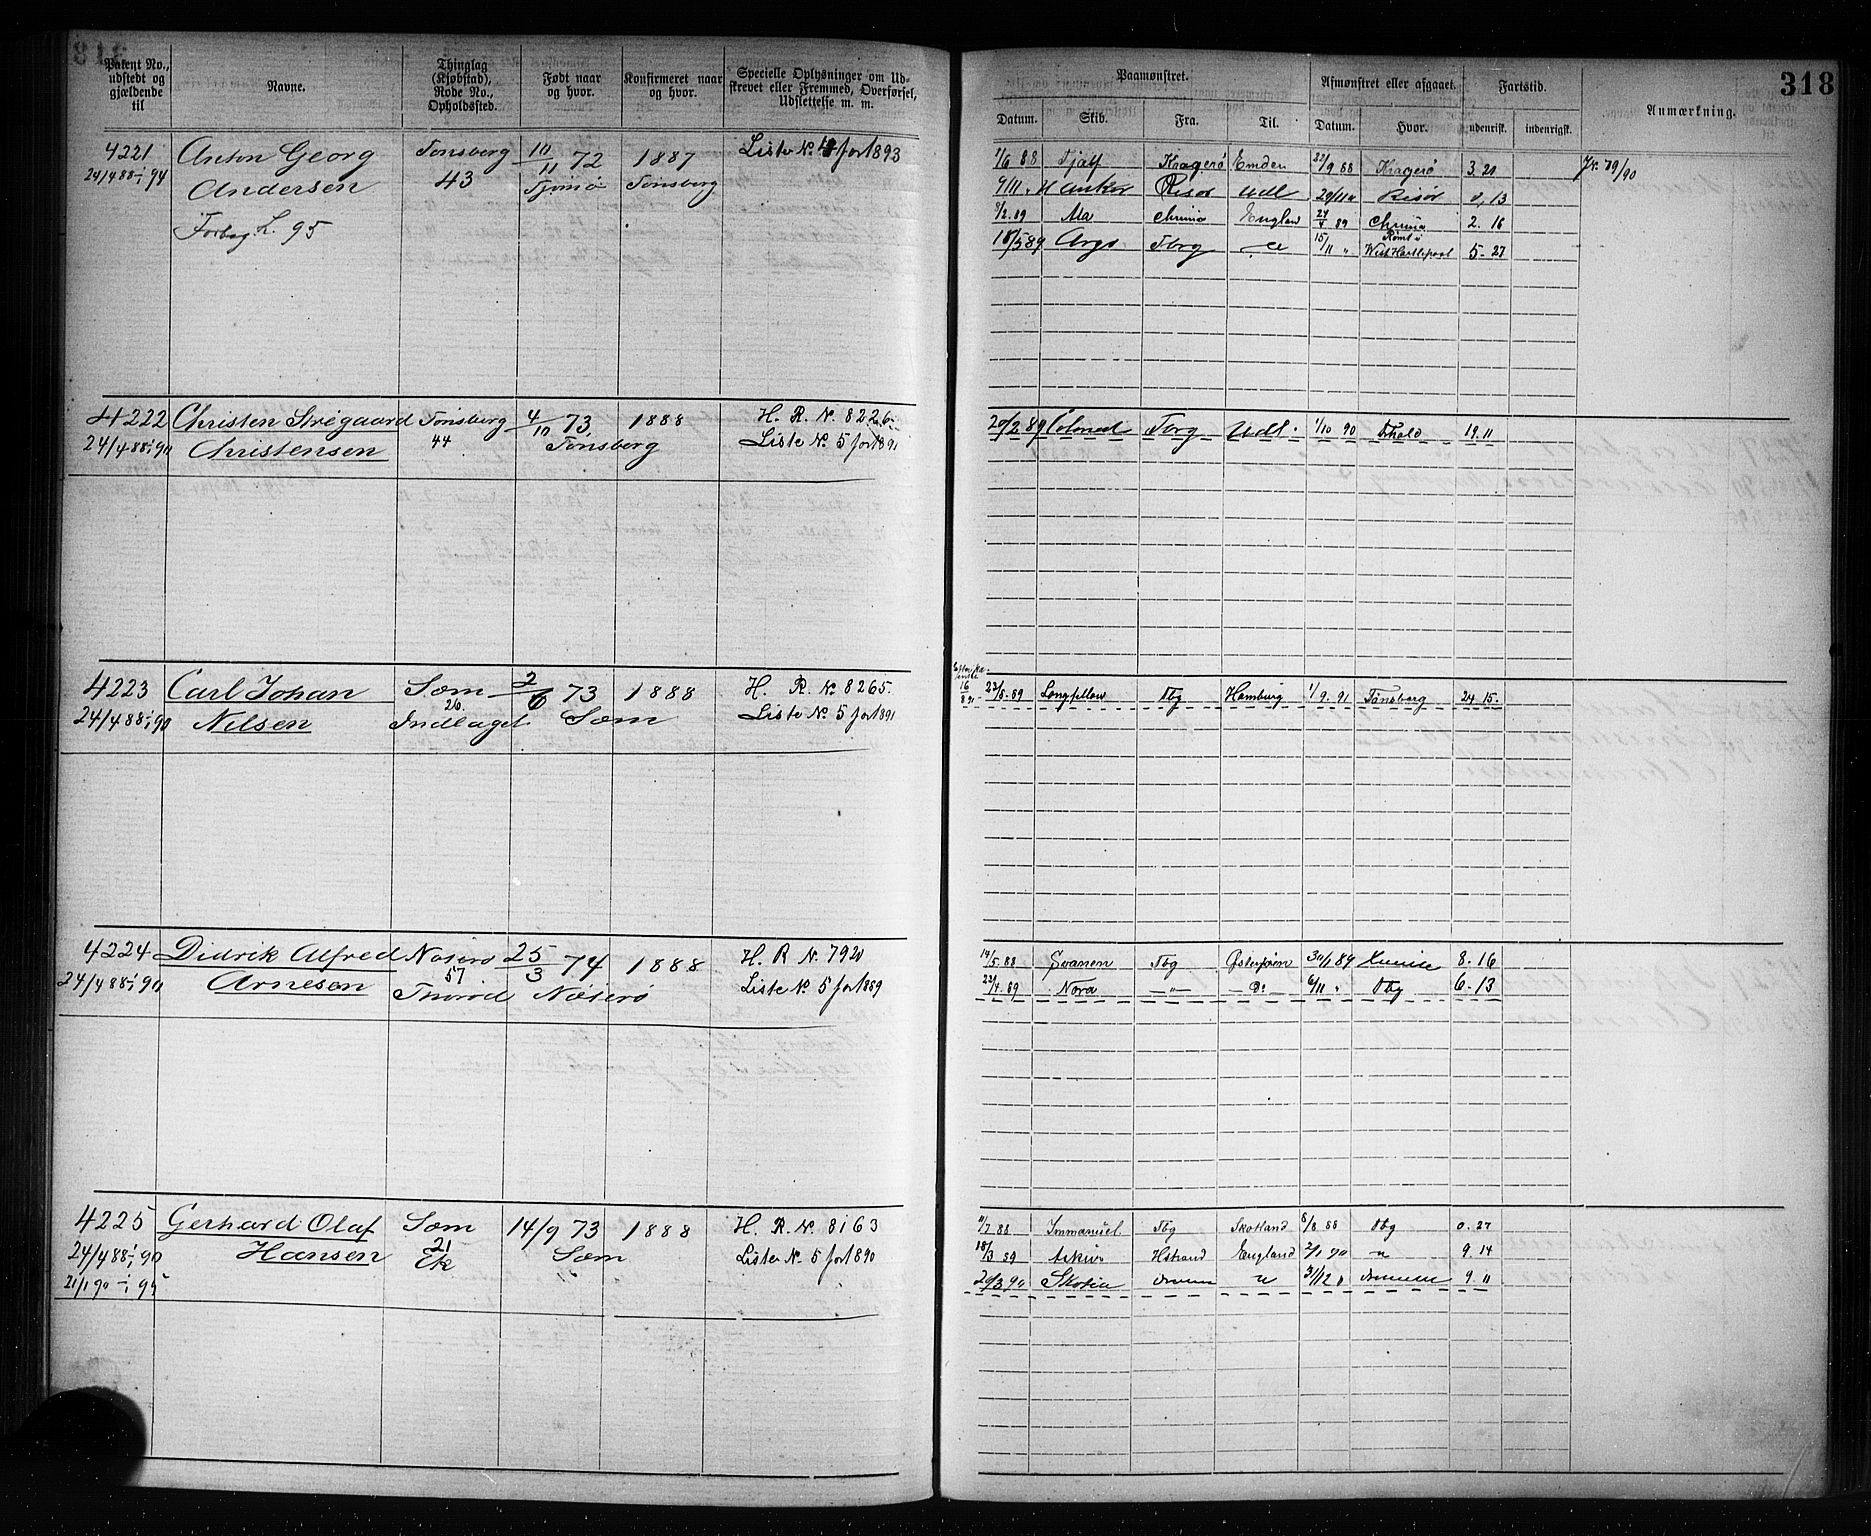 318
Patent No., udstedt og gjældende til
Navne.
Thinglag (Kjøbstad), Rode No., Opholdssted.
Født naar og hvor.
Konfirmeret naar og hvor.
Specielle Oplysninger om Udskrevet eller Fremmed, Overførsel, Udslettelse m. m.
Paamønstret.
Afmønstret eller afgaaet.
Fartstid.
Anmærkning.
Datum. Skib. Fra. Til. Datum. Hvor. udenrigsk. indenrigsk.
4221 Anton Georg Tønsberg 10/11 72 1887 Liste No. 4 for 1893
24/4 88 - 94 Andersen 43 Tjømø Tønsberg
L. 95
1/6 88 Fjalf Kragerø Emden 22/9 88 Kragerø 3. 21 79/90
9/11 " Anker Risør Udl 22/11 " Risør 0, 13
3/2. 89 Ida Chrina England 24/4 89 Chrina 2. 16
18/5 89 Argo Tbrg 15/11 " Rømt i West Hartlepool 5-27
4222 Christen Stregaard Tønsberg 4/10 73 1888 H. R. No. 8226
24/4 88 - 90 Christensen 44 Tønsberg Liste No. 5 for 1891
20/2 89 Colonist Tbrg Udl. 1/10 90 Fhald 19. 11
4223 Carl Johan Sæm 2/6 73 1888 H. R. No. 8265.
24/4 88 - 90 Nilsen 26. Indlaget Sæm Liste No. 5 for 1891
16/8 91 23/8. 89 Longfellow Tbg Hamburg 1/9. 91 Tønsberg 24. 15.
4224 Didrik Alfred Nøterø 25/3 74 1888 H. R No. 7920
24/4 88 - 90 Arnesen 57 Thorød Nøterø Liste No. 5 for 1889
14/5. 88 Svanen Tbg Østersjøen 30/1 89 8. 16
23/4. 89 Nora — " — Do 6/11 " Tbg 6. 13
4225 Gerhard Olaf Sæm 14/9 73 1888 H. R. No. 8163
24/4 88 - 90 Hansen 21 Ek Sæm Liste No. 5 for 1890
21/1 90 - 95
11/7 88 Immanuel Tbg Skotland 8/8 88 Tbg 0. 27
18/3 89 Askur Hstrand England 2/1 90 " 9. 14
20/3 90 Skotia Drmmn " 31/12 " Drmmn 9. 11